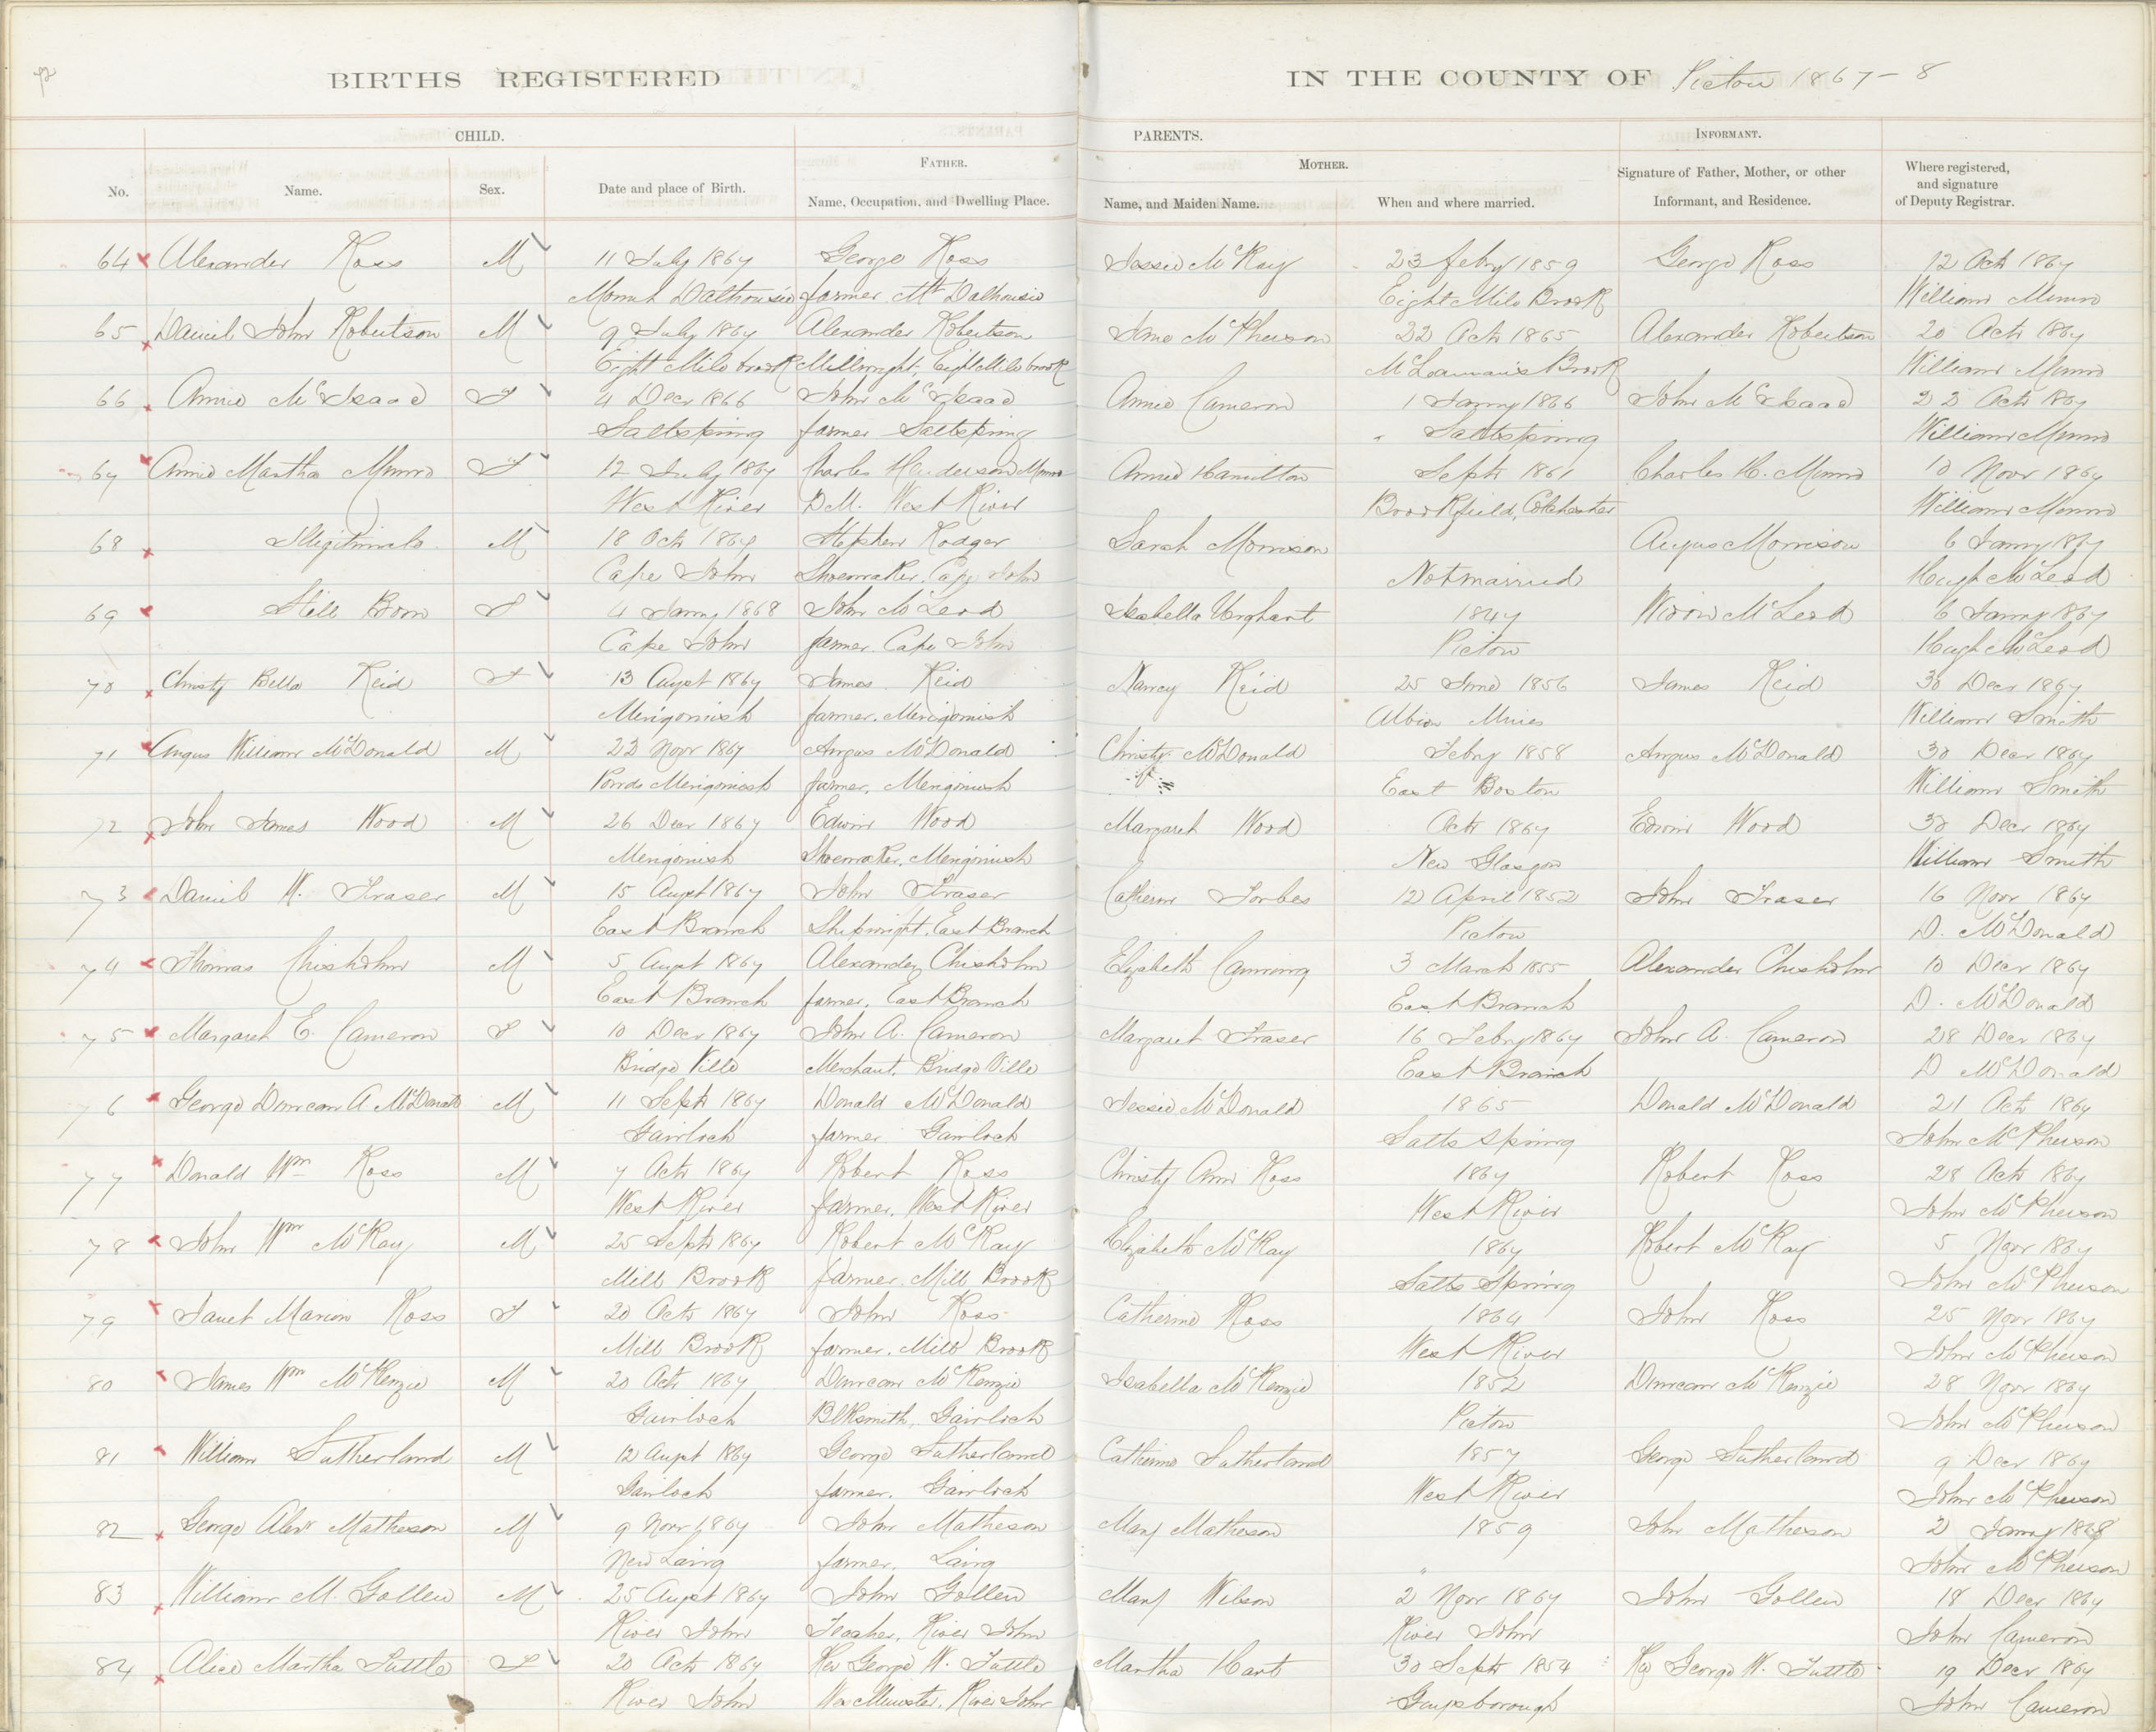 92
BIRTHS REGISTERED IN THE COUNTY OF Pictou 1867-8
CHILD. PARENTS. INFORMANT.
FATHER. MOTHER.
No. Name. Sex. Date and place of Birth. Name, Occupation, and Dwelling Place. Name, and Maiden Name. When and where married. Signature of Father, Mother, or other Informant, and Residence. Where registered, and signature of Deputy Registrar.
64 Alexander Ross M 11 July 1867 George Ross Jessie McKay 23 Febry 1859 George Ross 12 Octr 1867
Mount Dalhousie farmer Mt Dalhousie Eight Mile Brook William Munro
65 Daniel John Robertson M 9 July 1867 Alexander Robertson Jane McPherson 22 Octr 1865 Alexander Robertson 20 Octr 1867
Eight Mile brook Millwright, Eight Mile brook Brook William Munro
66 Annie McIsaac F 4 Decr 1866 John McIsaac Annie Cameron 1 Janry 1866 John McIsaac 22 Octr 1867
Saltspring farmer Saltspring Saltspring William Munro
67 Annie Martha Munro F 12 July 1867 Charles Henderson Munro Annie Hamilton Septr 1861 Charles H. Munro 10 Novr 1867
West River D.M. West River Brookfield, Colchester William Munro
68 Illigitimate M 18 Octr 1867 Stephen Rodger Sarah Morrison Angus Morrison 6 Janry 1867
Cape John Shoemaker, Cape John Not married Hugh McLeod
69 Still Born F 4 Janry 1868 John McLeod Isabella Urqhart 1847 Widow McLeod 6 Janry 1867
Cape John farmer. Cape John Pictou Hugh McLeod
70 Christy Bella Reid F 13 Augst 1867 James Reid Nancy Reid 25 June 1856 James Reid 30 Decr 1867
Merigomish farmer. Merigomish Albion Mines William Smith
71 Angus William McDonald M 22 Novr 1867 Angus McDonald Christy McDonald Febry 1858 Angus McDonald 30 Decr 1867
Ponds Merigomish farmer, Merigomish East Boston William Smith
72 John James Wood M 26 Decr 1867 Edwin Wood Margaret Wood Octr 1867 Edwin Wood 30 Decr 1867
Merigomish Shoemaker, Merigomish New Glasgow William Smith
73 Daniel W. Fraser M 15 Augst 1867 John Fraser Catherine Forbes 12 April 1852 John Fraser 16 Novr 1867
East Branch Shipwright, East Branch Pictou D. McDonald
74 Thomas Chisholm M 5 Augst 1867 Alexander Chisholm Elizabeth Canning 3 March 1855 Alexander Chisholm 10 Decr 1867
East Branch farmer, East Branch East Branch D. McDonald
75 Margaret E. Cameron F 10 Decr 1867 John A. Cameron Margaret Fraser 16 Febry 1867 John A. Cameron 28 Decr 1867
Bridge Ville Merchant, Bridge Ville East Branch D McDonald
76 George Duncan A McDonald M 11 Septr 1867 Donald McDonald Jessie McDonald 1865 Donald McDonald 21 Octr 1867
Gairloch farmer Gairloch Salts Spring John McPherson
77 Donald Wm Ross M 7 Octr 1867 Robert Ross Christy Ann Ross 1867 Robert Ross 28 Octr 1867
West River farmer, West River West River John McPherson
78 John Wm McKay M 25 Septr 1867 Robert McKay Elizabeth McKay 1867 Robert McKay 5 Novr 1867
Mill Brook farmer. Mill Brook Salts Spring John McPherson
79 Janet Marion Ross F 20 Octr 1867 John Ross Catherine Ross 1864 John Ross 25 Novr 1867
Mill Brook farmer. Mill Brook West River John McPherson
80 James Wm McKenzie M 20 Octr 1867 Duncan McKenzie Isabella McKenzie 1852 Duncan McKenzie 28 Novr 1867
Gairloch Blksmith, Gairloch Pictou John McPherson
81 William Sutherland M 12 Augst 1867 George Sutherland Catherine Sutherland 1857 George Sutherland 9 Decr 1867
Gairloch farmer. Gairloch West River John McPherson
82 George Alexr Matheson M 9 Novr 1867 John Matheson Mary Matheson 1859 John Matheson 2 Janry 1868
New Lairg farmer, Lairg " John McPherson
83 William M. Gollen M 25 Augst 1867 John Gollen Mary Wilson 2 Novr 1867 John Gollen 18 Decr 1867
River John Teacher, River John River John John Cameron
84 Alice Martha Tuttle F 20 Octr 1867 Rev George W. Tuttle Martha Hart 30 Septr 1854 Rev George W. Tuttle 19 Decr 1867
River John Wes Minister, River John Guysborough John Cameron